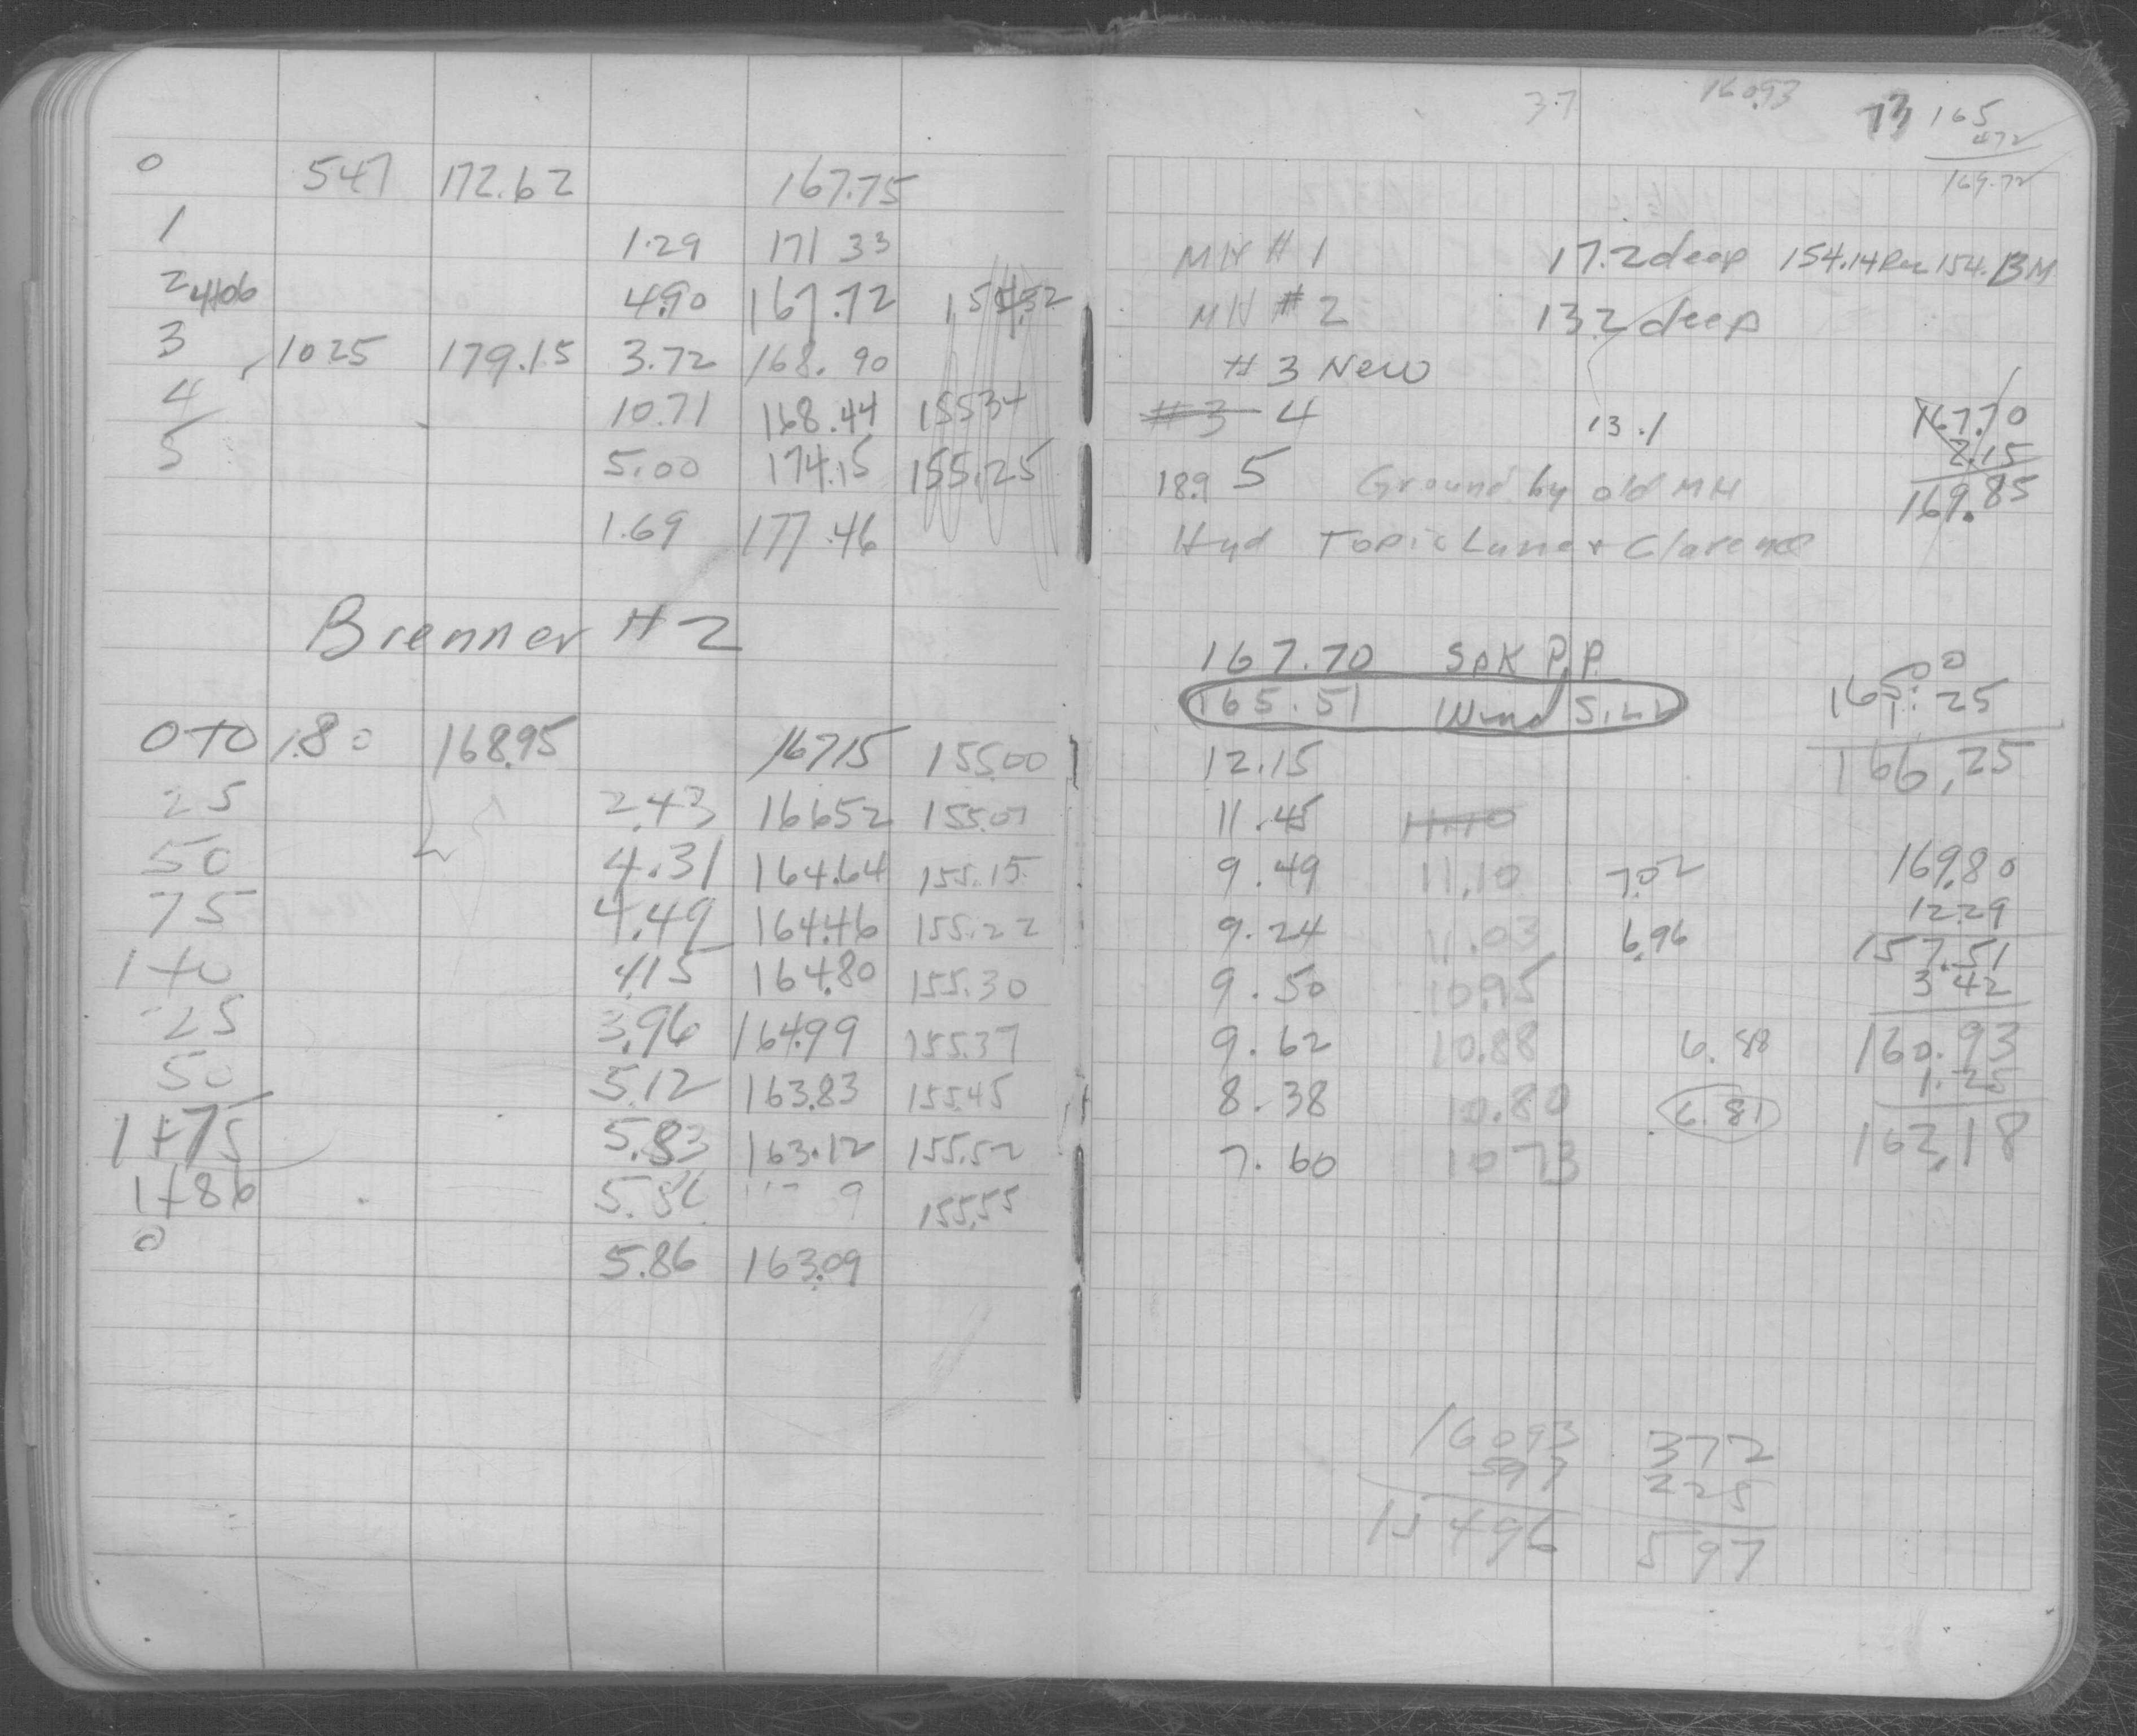 0 547 172.62 167.75
1 1.29 171 33
2 4+06 4.90 167.72
3 10 25 179.15 3.72 168.90
4 10.71 168.44 155 34
5 5.00 174.15 155.25
1.69 177.46
Brenner # 2
0+0 1.80 168.95 167 15 155.00
25 2.43 166 52 155.07
50 4.31 164.64 155.15
75 4.49 164.46 155.22
1+0 4.15 164.80 155.30
25 3.96 164.99 155.37
50 5.12 163.83 155.45
1+75 5.83 163.12 155.52
1+86 5.86 155.55
0 5.86 163.09
3.7 160.93 73 165
4.72
169.72
MH # 1 17.2 deep 154.14 154. BM
MH # 2 13.2 deep
# 3 New
#3 4 13.1 167.70
2.15
169.85
18.9 5 Ground by old MH
Hyd Topic Lane + Clarence
167.70 Spk P.P.
165.51 Wind Sill
165.25
166.25
12.15
11.45 11.10
9.49 11.10 7.02 169.80
9.24 11.03 6.96 12.29
157.51
9.50 10.95 3 42
9.62 10.88 6.88 160.93
8.38 10.80 6.81 1.25
7.60 10 73 162.18
16093 372
597 225
15496 597